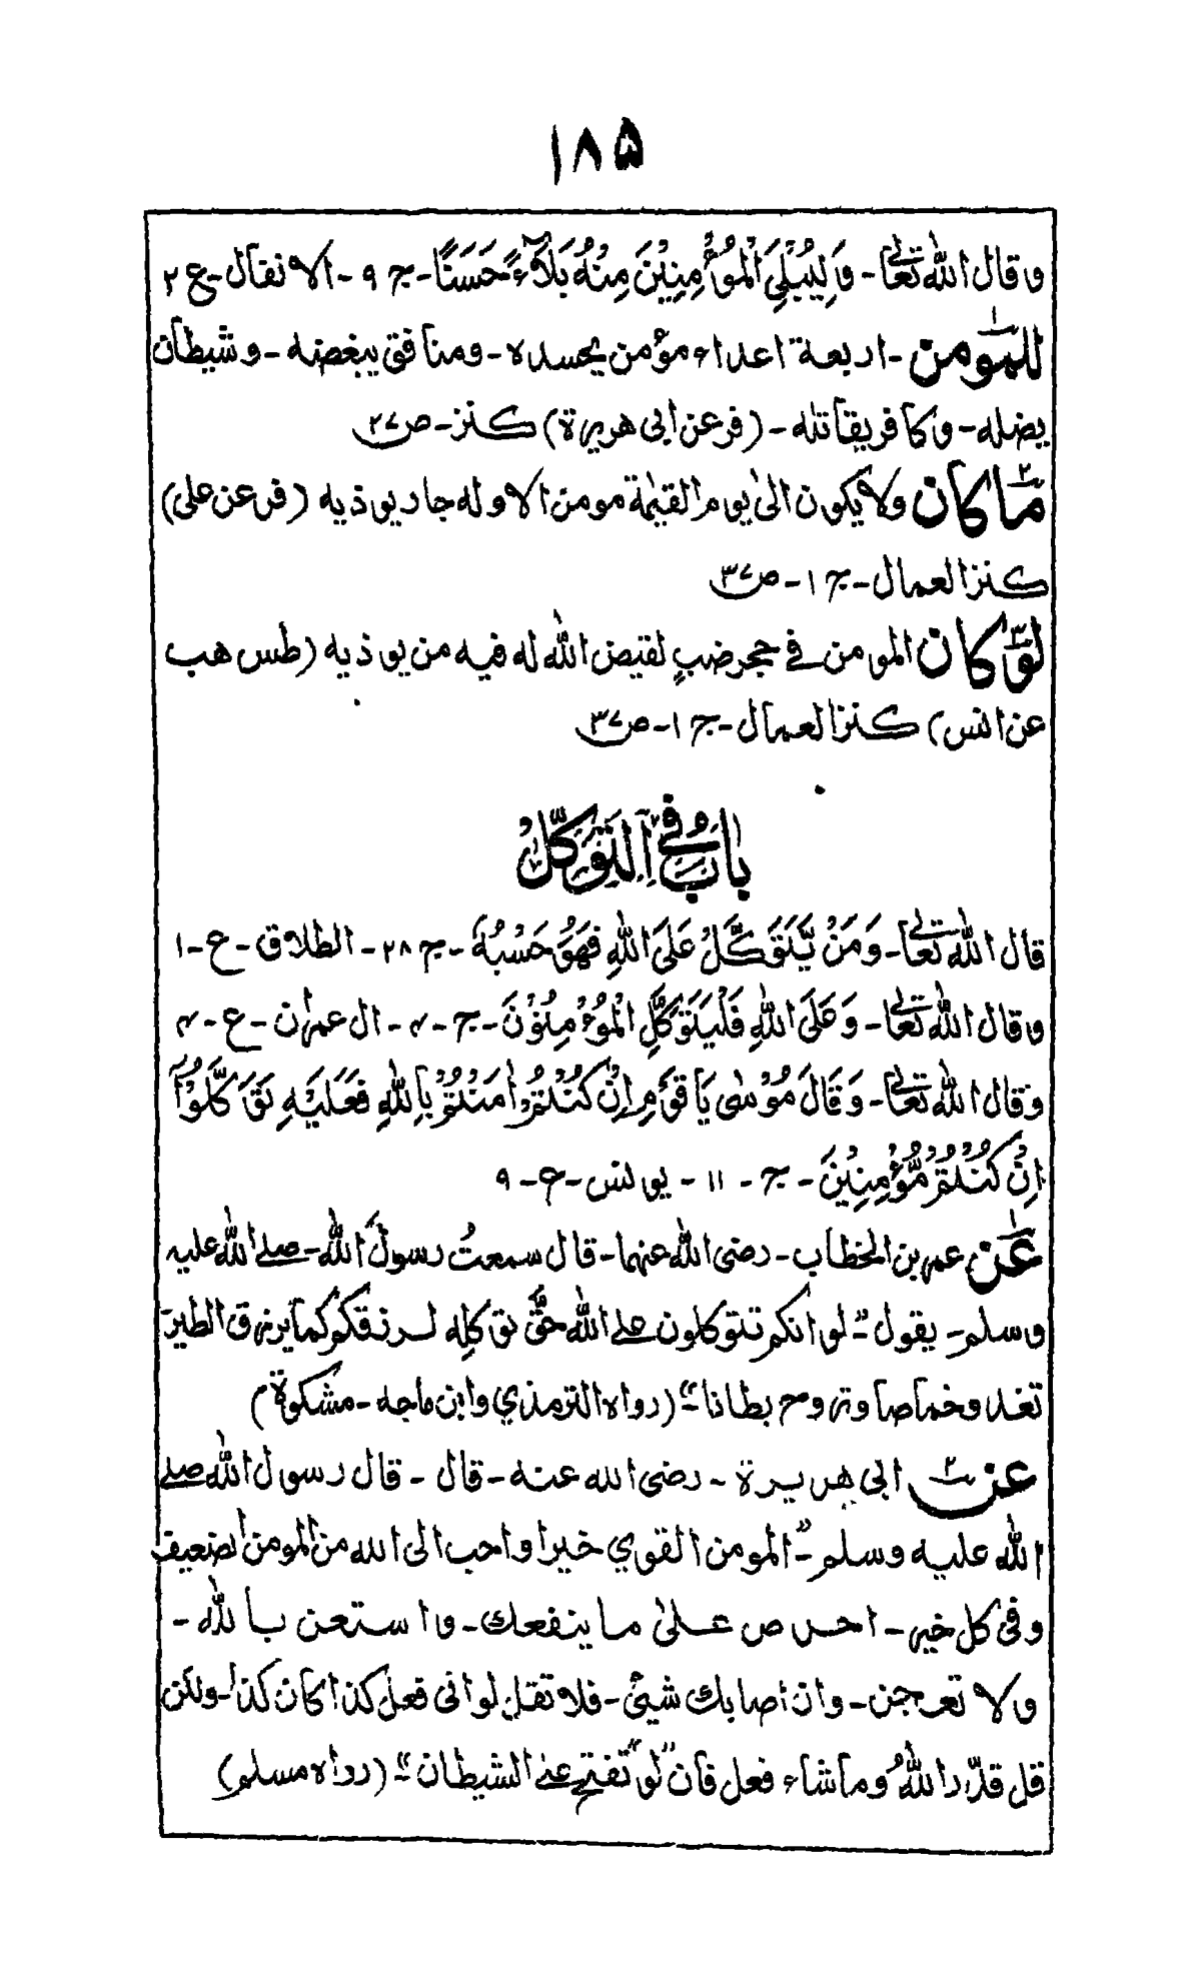 ١٨٥
وقال الله تعالى - وَلِيُبْلِيَ الْمُؤْمِنِيْنَ مِنْهُ بَلَآءً حَسَنًا - ج ٩ - الانفال - ع ٢
للمؤمن - اربعة اعداء مؤمن يحسده - ومنافق يبغضه - وشيطان
يضله - وكافر يقاتله - (فر عن ابى هريرة) كنز - ص ٢٧
ما كان ولا يكون الىٰ يوم القيٰمة مومن الا وله جار يوذيه (فر عن على)
كنز العمال - ج ١ - ص ٣٧
لو كان المومن فى جحر ضبٍ لقيض الله له فيه من يوذيه (طس هب
عن انس) كنز العمال - ج ١ - ص ٣٧
بابٌ فى التوكّل
قال الله تعالى - وَمَنْ يَّتَوَكَّلْ عَلَى اللهِ فَهُوَ حَسْبُهُ - ج ٢٨ - الطلاق - ع - ١
وقال الله تعالى - وَعَلَى اللهِ فَلْيَتَوَكَّلِ الْمُؤْمِنُوْنَ - ج - ۴ - ال عمرٰن - ع - ۴
وقال الله تعالى - وَقَالَ مُوْسٰى يَا قَوْمِ اِنْ كُنْتُمْ اٰمَنْتُمْ بِاللهِ فَعَلَيْهِ تَوَكَّلُوْآ
اِنْ كُنْتُمْ مُّؤْمِنِيْنَ - ج - ١١ - يونس - ع - ٩
عن عمر بن الخطاب - رضى الله عنهما - قال سمعتُ رسولَ الله - صلى الله عليه
وسلم - يقول - "لو انكم تتوكلون على الله حقَّ توكله لرزقكم كما يرزق الطير
تغدو خماصا وتروح بطانا" - (رواه الترمذي وابن ماجه - مشكوة)
عن ابى هريرة - رضى الله عنه - قال - قال رسول الله صلى
الله عليه وسلم - "المومن القوي خيرا واحب الى الله من المومن الضعيف
وفى كل خير - احرص علىٰ ما ينفعك - واستعن بالله -
ولا تعجز - وان اصابك شيئ - فلا تقل لو انى فعل كذا كان كذا - ولكن
قل قدّر اللهُ وما شاء فعل فان "لو" تفتح عمل الشيطان" - (رواه مسلم)